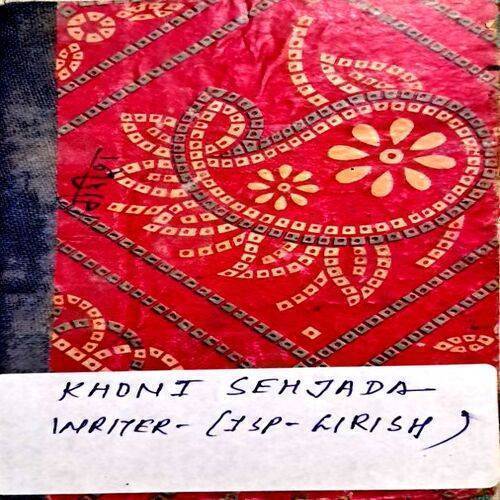 KHONI SEHJADA
WRITER- (JSP- GIRISH)